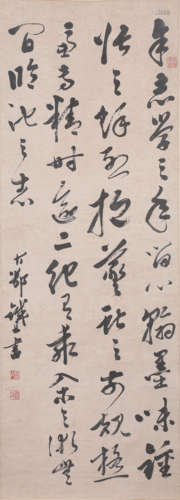 余志學之年留心翰墨味鍾
張之餘烈挹羲獻之前規極
慮專精時逾二紀有乖入木之術無
間臨池之志
書